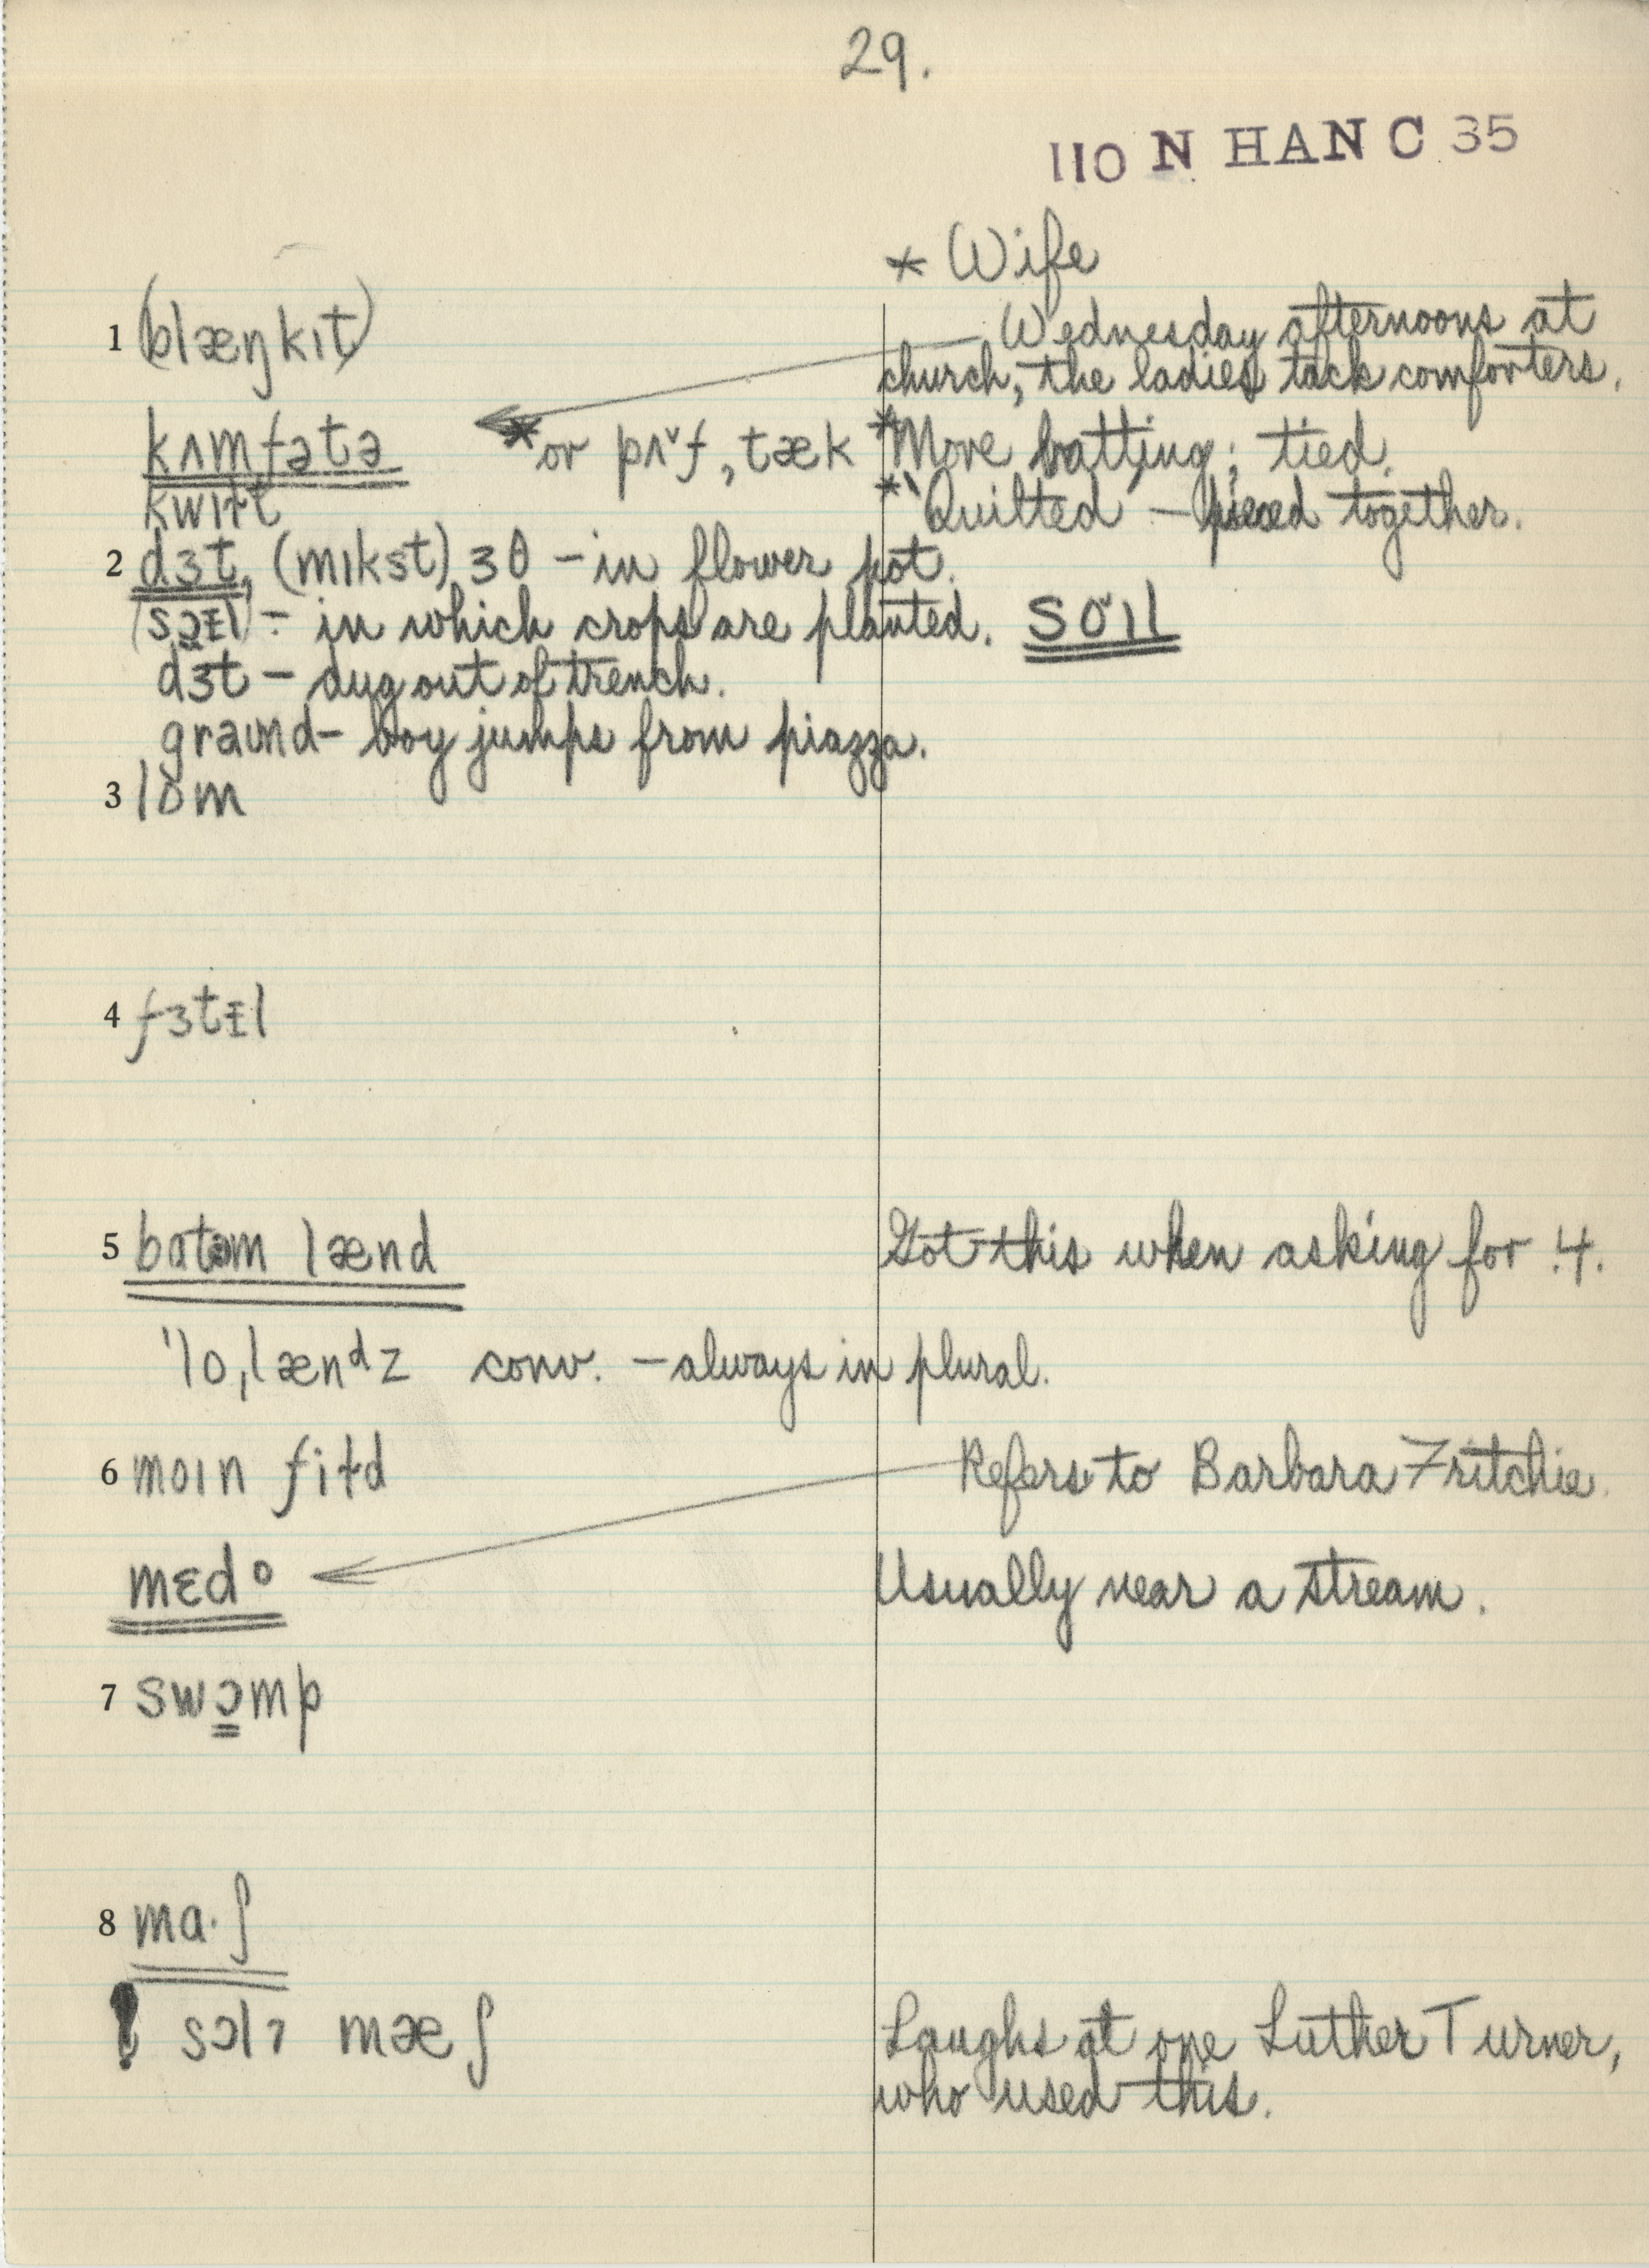 29.
110 N HAN C 35
* Wife
1 (blæŋkɪt) — Wednesday afternoons at
church, the ladies tack comforters.
kʌmfətə *or pʌ˅f, tæk *More batting; tied.
kwɪɫt *Quilted — pieced together.
2 dɜt, (mɪkst) ɜθ — in flower pot.
(səɪl) — in which crops are planted. sɔɪl
dɜt — dug out of trench.
graʊnd — boy jumps from piazza.
3 lom
4 fɜtɪl
5 batəm lænd Got this when asking for 4.
ˈloˌlænᵈz conv. — always in plural.
6 moɪn fiɫd Refers to Barbara Fritchie.
mɛdo Usually near a stream.
7 swɔmp
8 ma·ʃ
! sɔlɪ mæʃ Laughs at one Luther Turner,
who used this.